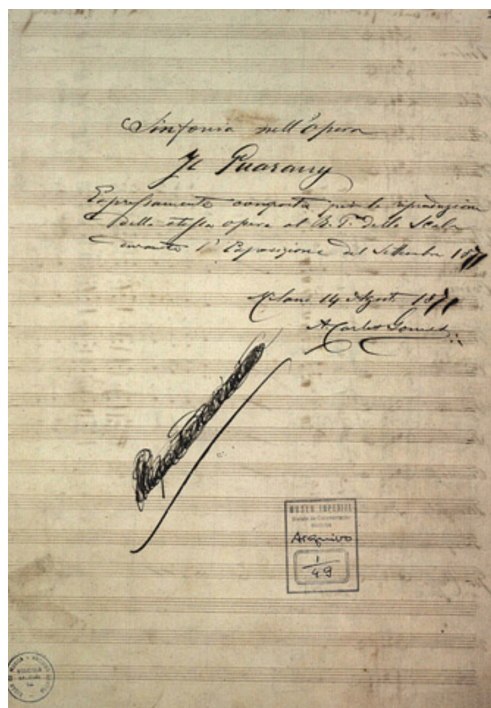 Sinfonia nell'Opera
Il Guarany
Espressamente composta per la riproduzione
della stessa opera al R. T.º della Scala
durante l'Esposizione del Settembre 1871
Milano 14 Agost. 1871
A. Carlos Gomes
MUSEU IMPERIAL
Arquivo
1
49